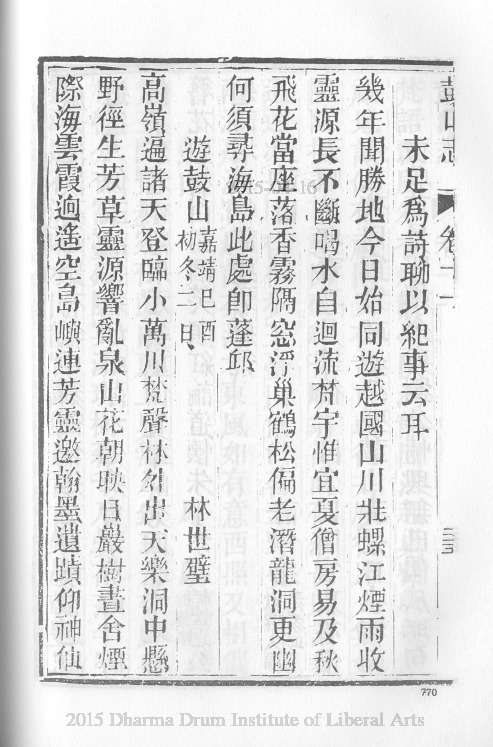 鼓山志 卷十一
未足爲詩聊以紀事云耳
幾年聞勝地今日始同遊越國山川壯螺江煙雨收
靈源長不斷喝水自迴流梵宇惟宜夏僧房易及秋
飛花當座落香霧隔窓浮巢鶴松偏老潛龍洞更幽
何須尋海島此處卽蓬邱
遊鼓山 嘉靖己酉
初冬二日 林世璧
高嶺逼諸天登臨小萬川梵聲林外出天樂洞中懸
野徑生芳草靈源響亂泉山花朝映日巖樹晝含煙
際海雲霞逈遙空島嶼連芳靈邀翰墨遺蹟仰神仙
770
2015 Dharma Drum Institute of Liberal Arts